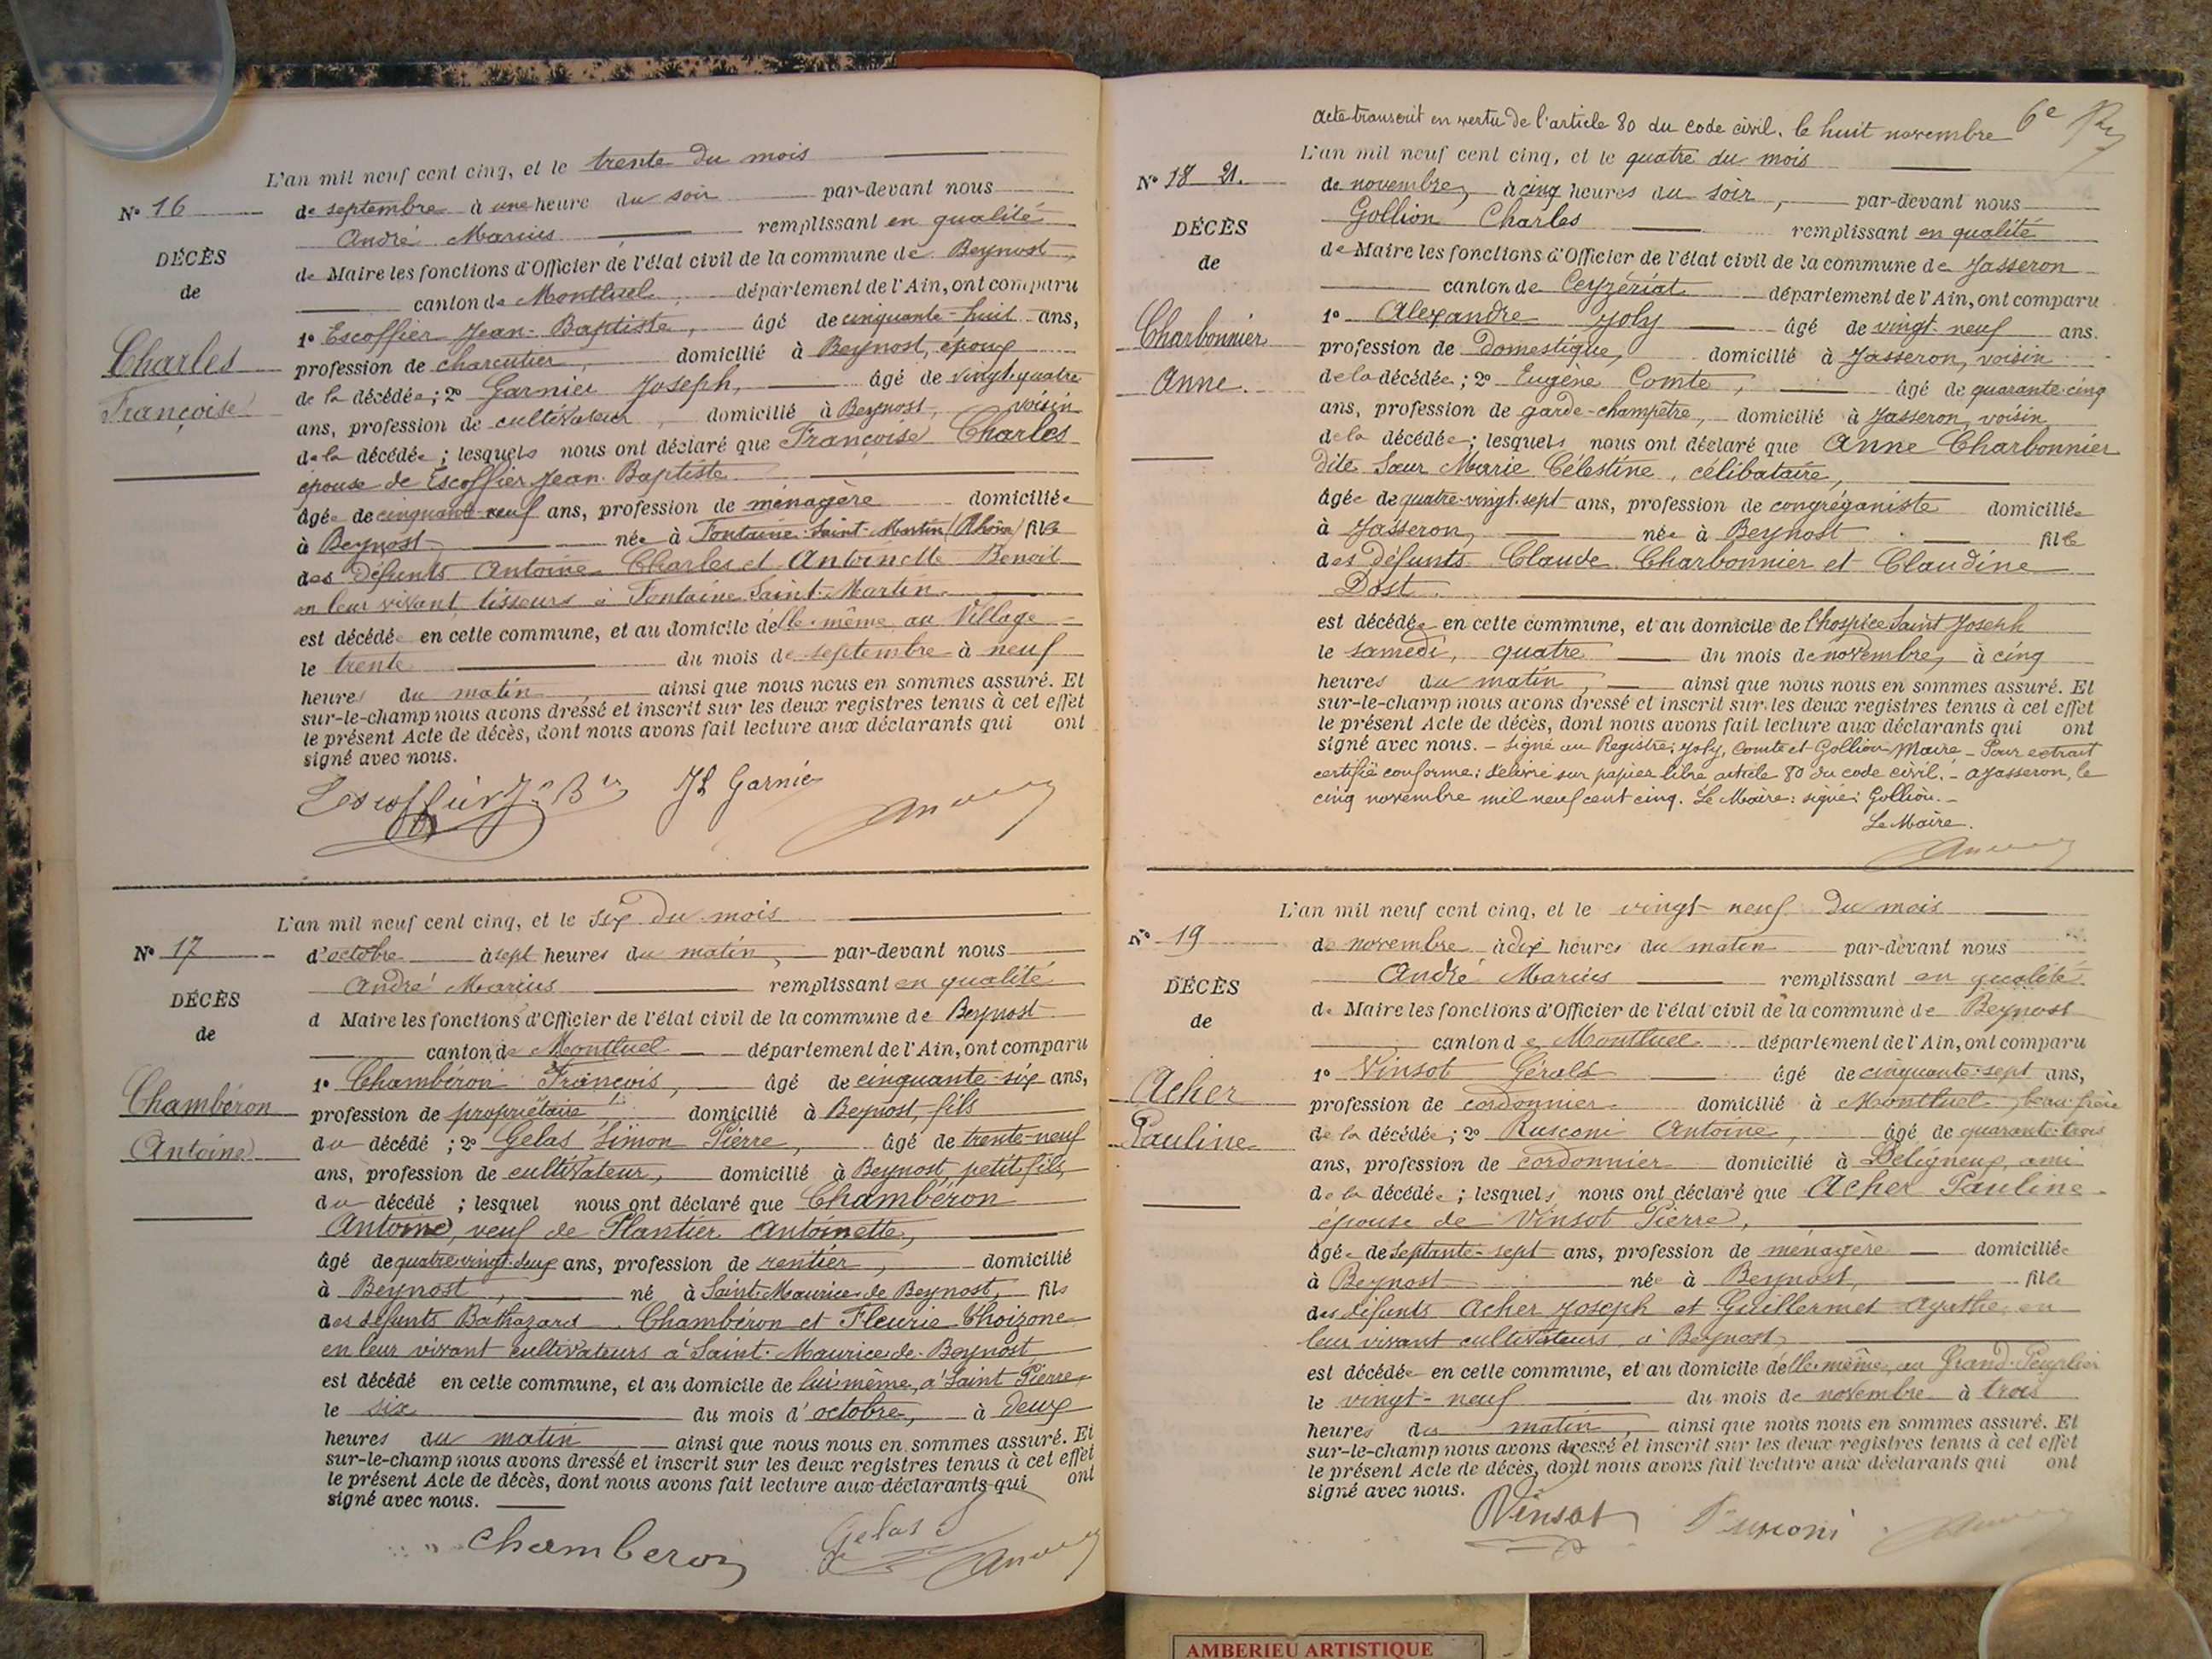 L'an mil neuf cent cinq, et le trente du mois
N° 16
de septembre à une heure du soir par-devant nous
André Marius remplissant en qualité
DÉCÈS
de
de Maire les fonctions d'Officier de l'état civil de la commune de Beynost
canton de Montluel, département de l'Ain, ont comparu
1° Escoffier Jean-Baptiste, âgé de cinquante-huit ans,
Charles
Françoise
profession de charcutier, domicilié à Beynost, époux
de la décédée; 2° Garnier Joseph, âgé de vingt-quatre
ans, profession de cultivateur, domicilié à Beynost, voisin
de la décédée; lesquels nous ont déclaré que Françoise Charles
épouse de Escoffier Jean-Baptiste
âgée de cinquante-neuf ans, profession de ménagère domiciliée
à Beynost née à Fontaine-Saint-Martin (Rhône) fille
des défunts Antoine Charles et Antoinette Benoit
en leur vivant tisseurs à Fontaine-Saint-Martin.
est décédée en cette commune, et au domicile d'elle-même au Village
le trente du mois de septembre à neuf
heures du matin, ainsi que nous nous en sommes assuré. Et
sur-le-champ nous avons dressé et inscrit sur les deux registres tenus à cet effet
le présent Acte de décès, dont nous avons fait lecture aux déclarants qui ont
signé avec nous.
Escoffier J. B. JL Garnier
L'an mil neuf cent cinq, et le six du mois
N° 17
d'octobre à sept heures du matin, par-devant nous
André Marius remplissant en qualité
DÉCÈS
de
d Maire les fonctions d'Officier de l'état civil de la commune de Beynost
canton de Montluel département de l'Ain, ont comparu
1° Chambéron François, âgé de cinquante-six ans,
Chambéron
(Antoine)
profession de propriétaire, domicilié à Beynost, fils
du décédé; 2° Gelas Simon Pierre, âgé de trente-neuf
ans, profession de cultivateur, domicilié à Beynost, petit-fils,
du décédé; lesquel nous ont déclaré que Chambéron
Antoine, veuf de Plantier Antoinette,
âgé de quatre-vingt-deux ans, profession de rentier, domicilié
à Beynost, né à Saint-Maurice-de-Beynost, fils
des défunts Bathazard Chambéron et Fleurie Thoizone
en leur vivant cultivateurs à Saint-Maurice-de-Beynost
est décédé en cette commune, et au domicile de lui-même, à Saint-Pierre
le six du mois d'octobre, à deux
heures du matin ainsi que nous nous en sommes assuré. Et
sur-le-champ nous avons dressé et inscrit sur les deux registres tenus à cet effet
le présent Acte de décès, dont nous avons fait lecture aux déclarants qui ont
signé avec nous.
Chamberon Gelas
acte transcrit en vertu de l'article 80 du code civil. le huit novembre 6e
L'an mil neuf cent cinq, et le quatre du mois
N° 18 21.
de novembre, à cinq heures du soir, par-devant nous
Gollion Charles remplissant en qualité
DÉCÈS
de
de Maire les fonctions d'Officier de l'état civil de la commune de Jasseron
canton de Ceyzériat département de l'Ain, ont comparu
1° Alexandre Joly âgé de vingt-neuf ans.
Charbonnier
Anne.
profession de domestique, domicilié à Jasseron, voisin
de la décédée; 2° Eugène Comte, âgé de quarante-cinq
ans, profession de garde-champêtre, domicilié à Jasseron, voisin
de la décédée; lesquels nous ont déclaré que Anne Charbonnier
dite Sœur Marie Célestine, célibataire,
âgée de quatre-vingt-sept ans, profession de congréganiste domiciliée
à Jasseron, née à Beynost fille
des défunts Claude Charbonnier et Claudine
Dost.
est décédée en cette commune, et au domicile de l'hospice Saint Joseph
le samedi, quatre du mois de novembre, à cinq
heures du matin, ainsi que nous nous en sommes assuré. Et
sur-le-champ nous avons dressé et inscrit sur les deux registres tenus à cet effet
le présent Acte de décès, dont nous avons fait lecture aux déclarants qui ont
signé avec nous. - Signé au Registre: Joly, Comte et Gollion Maire - Pour extrait
certifié conforme: délivré sur papier libre article 80 du code civil. - à Jasseron, le
cinq novembre mil neuf cent cinq. Le Maire: signé: Gollion. -
Le Maire.
L'an mil neuf cent cinq, et le vingt-neuf du mois
N° 19
de novembre à dix heures du matin par-devant nous
André Marius remplissant en qualité
DÉCÈS
de
de Maire les fonctions d'Officier de l'état civil de la commune de Beynost
canton de Montluel département de l'Ain, ont comparu
1° Vinsot Gérald âgé de cinquante-sept ans,
Acher
Pauline
profession de cordonnier domicilié à Montluel, beau-frère
de la décédée; 2° Rusconi Antoine, âgé de quarante-trois
ans, profession de cordonnier domicilié à Béligneux, ami
de la décédée; lesquels nous ont déclaré que Acher Pauline
épouse de Vinsot Pierre,
âgée de septante-sept ans, profession de ménagère domiciliée
à Beynost née à Beynost, fille
des défunts Acher Joseph et Guillermet Agathe en
leur vivant cultivateurs à Beynost,
est décédée en cette commune, et au domicile d'elle-même, au Grand-Peuplier
le vingt-neuf du mois de novembre à trois
heures du matin, ainsi que nous nous en sommes assuré. Et
sur-le-champ nous avons dressé et inscrit sur les deux registres tenus à cet effet
le présent Acte de décès, dont nous avons fait lecture aux déclarants qui ont
signé avec nous.
Vinsot Rusconi
AMBERIEU ARTISTIQUE